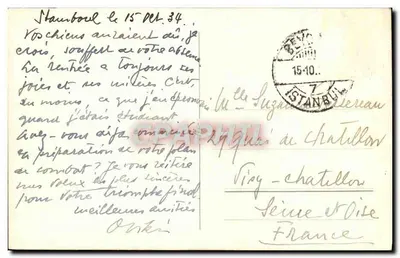 Stamboul le 15 Oct. 34.
Vos chiens auraient dû, je
crois, souffert de votre absence
La rentrée a toujours ses
joies et ses misères. C'est
du moins, ce que j'éprouvais
quand j'étais étudiant.
Avez-vous déjà commencé
la préparation de votre plan
de combat? Je vous réitère
mes vœux les plus sincères
pour votre triomphe final.
meilleures amitiés
BEYO
15-10.
7
ISTANBUL
Mlle Suzanne
29 quai de Chatillon
Viry-Chatillon
Seine et Oise
France